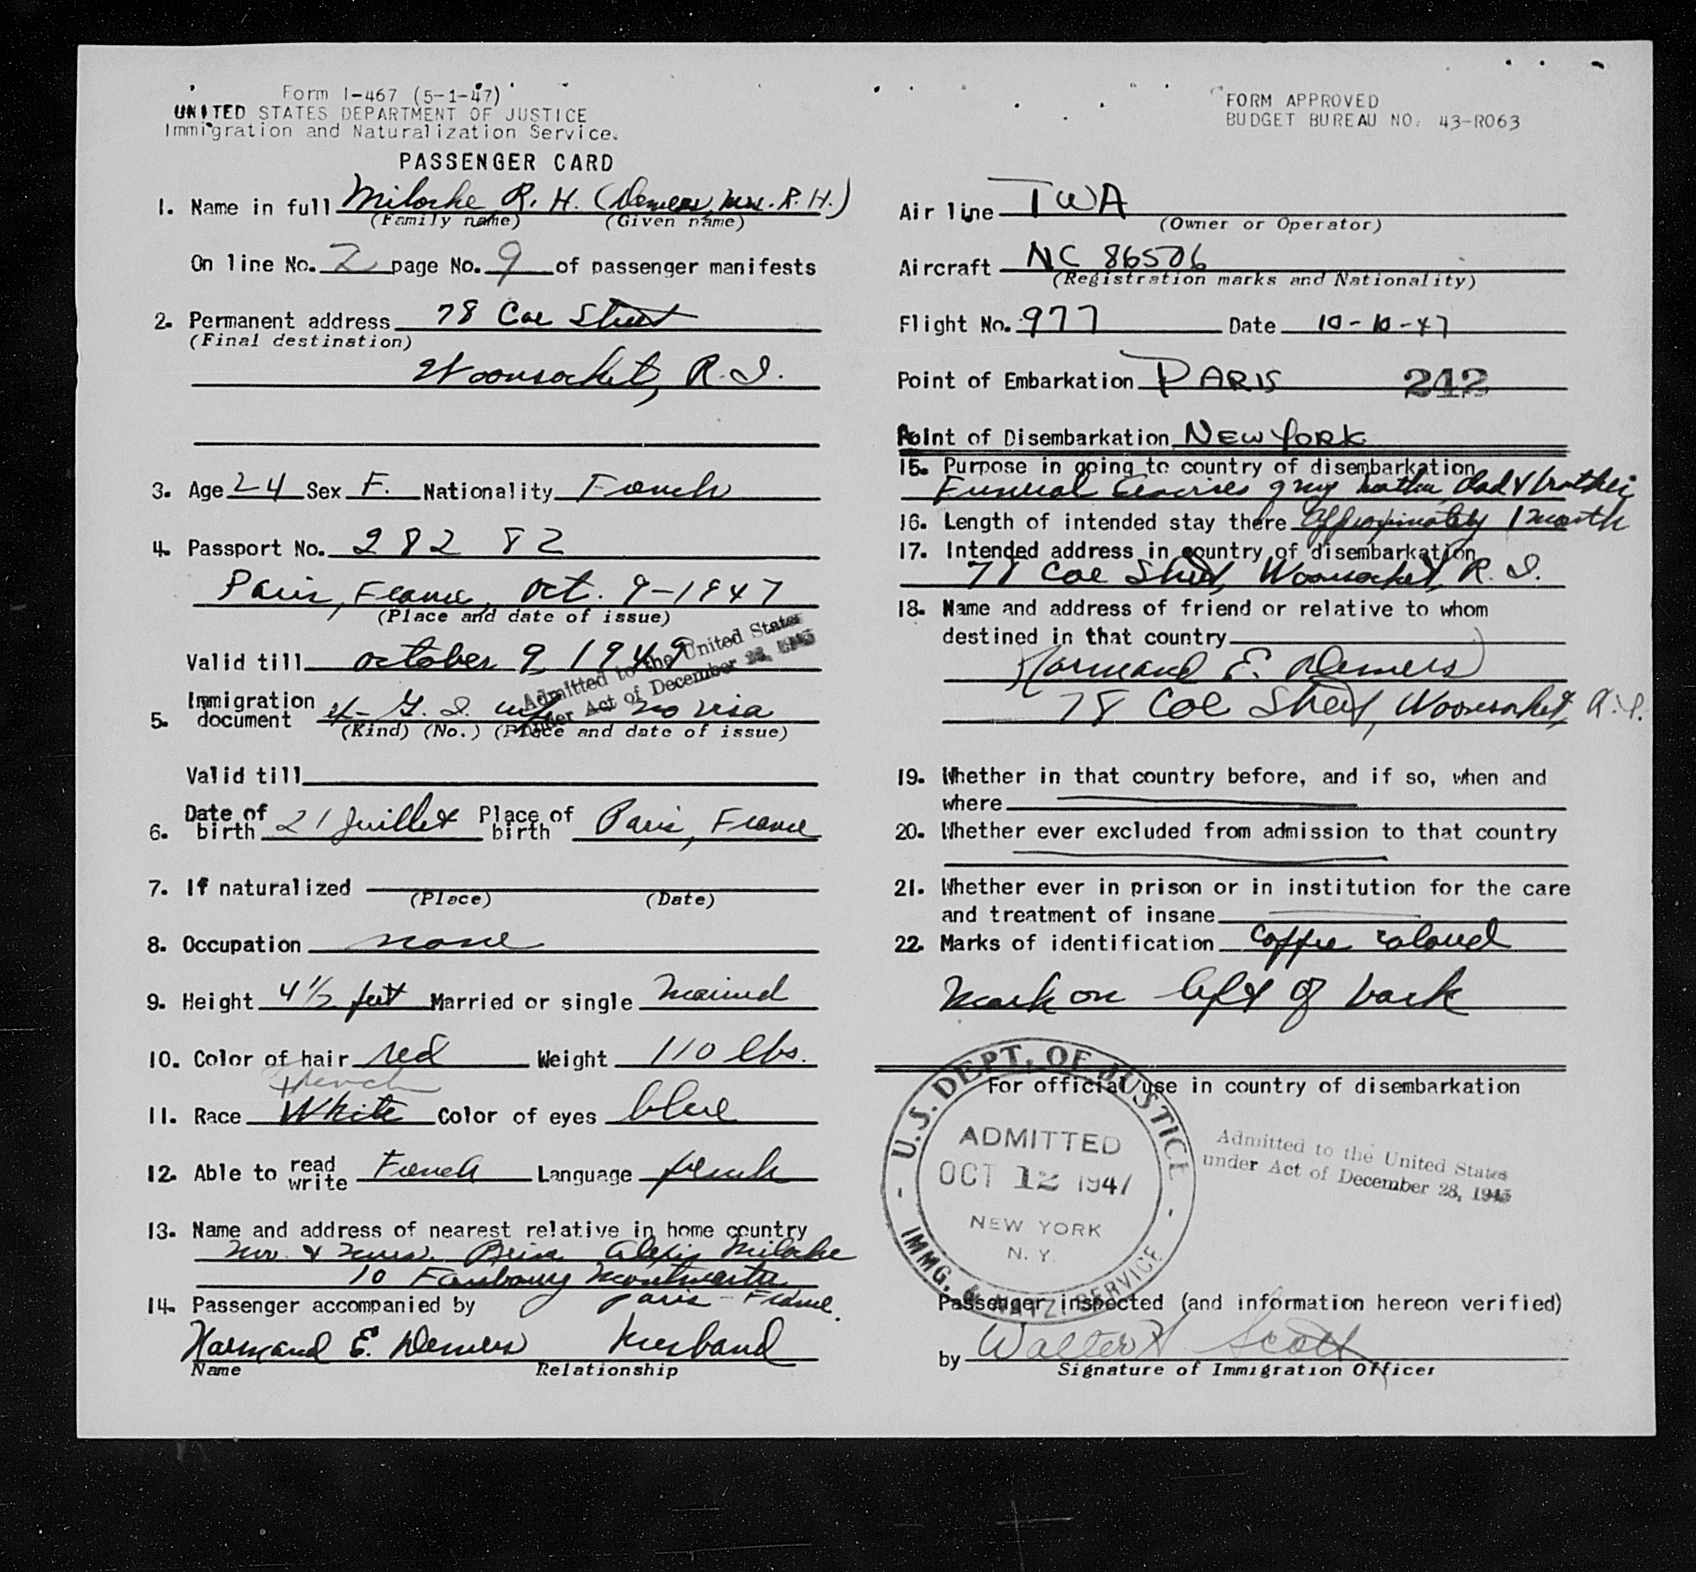 Form I-467 (5-1-47)
UNITED STATES DEPARTMENT OF JUSTICE
Immigration and Naturalization Service.
PASSENGER CARD
1. Name in full Miloche R. H. (Demers, Mrs. R. H.)
(Family name) (Given name)
On line No. 2 page No. 9 of passenger manifests
2. Permanent address 78 Coe Street
(Final destination)
Woonsocket, R. I.
3. Age 24 Sex F. Nationality French
4. Passport No. 282 82
Paris, France, Oct. 9-1947
(Place and date of issue)
Valid till October 9, 1949
Admitted to the United States
under Act of December 28, 1945
5. Immigration document G. I. no visa
(Kind) (No.) (Place and date of issue)
Valid till
6. Date of birth 21 Juillet Place of birth Paris, France
7. If naturalized
(Place) (Date)
8. Occupation none
9. Height 4 1/2 feet Married or single Married
10. Color of hair red Weight 110 lbs.
French
11. Race White Color of eyes blue
12. Able to read write French Language french
13. Name and address of nearest relative in home country
Mr. & Mrs. Alexis Miloche
10 Faubourg Montmartre
Paris - France.
14. Passenger accompanied by
Normand E. Demers Husband
Name Relationship
FORM APPROVED
BUDGET BUREAU NO. 43-R063
Air line TWA
(Owner or Operator)
Aircraft NC 86506
(Registration marks and Nationality)
Flight No. 977 Date 10-10-47
Point of Embarkation PARIS 242
Point of Disembarkation NEW YORK
15. Purpose in going to country of disembarkation
Funeral of my mother, dad & brother
16. Length of intended stay there approximately 1 month
17. Intended address in country of disembarkation
78 Coe Street, Woonsocket, R. I.
18. Name and address of friend or relative to whom
destined in that country
Normand E. Demers
78 Coe Street, Woonsocket, R. I.
19. Whether in that country before, and if so, when and
where
20. Whether ever excluded from admission to that country
21. Whether ever in prison or in institution for the care
and treatment of insane
22. Marks of identification coffee colored
mark on left of back
For official use in country of disembarkation
U.S. DEPT. OF JUSTICE
ADMITTED
OCT 12 1947
NEW YORK
N. Y.
IMMG. & NATZ. SERVICE
Admitted to the United States
under Act of December 28, 1945
Passenger inspected (and information hereon verified)
by Walter H Scott
Signature of Immigration Officer